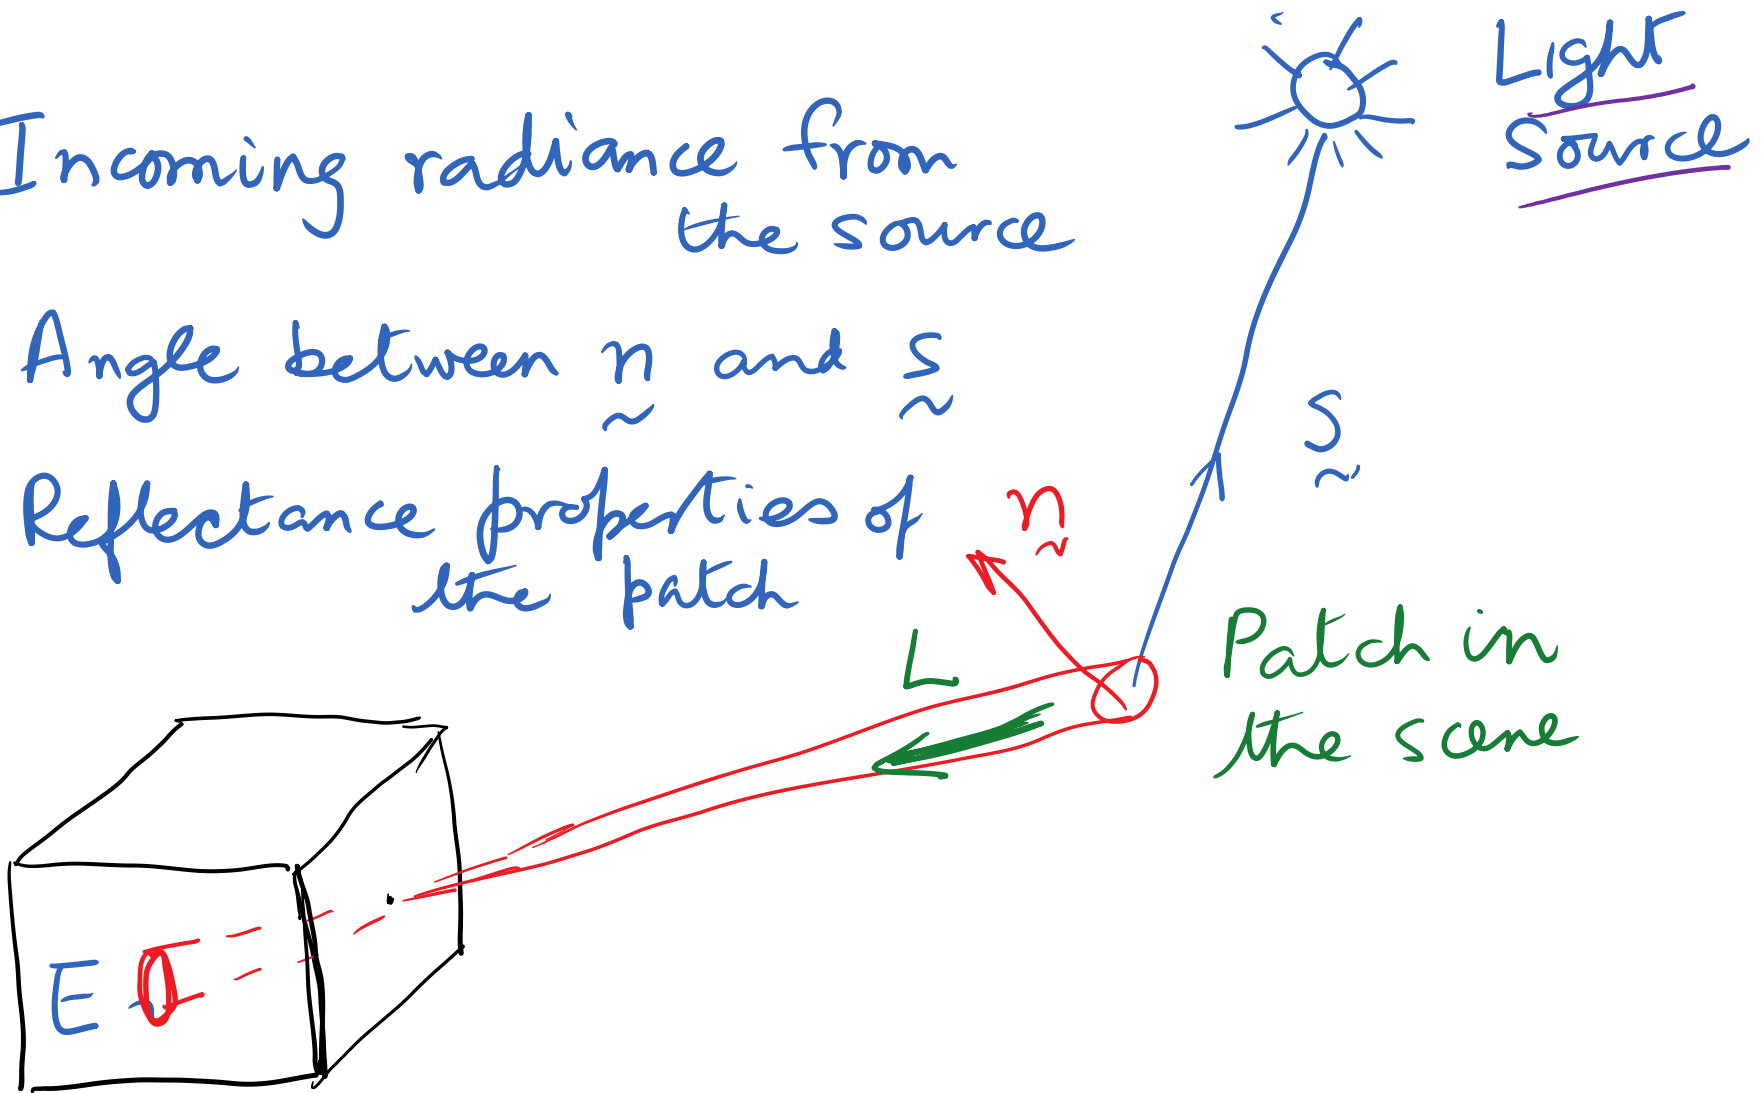 Incoming radiance from
the source
Angle between n and s
Reflectance properties of
the patch
Light
Source
s
n
L
Patch in
the scene
E